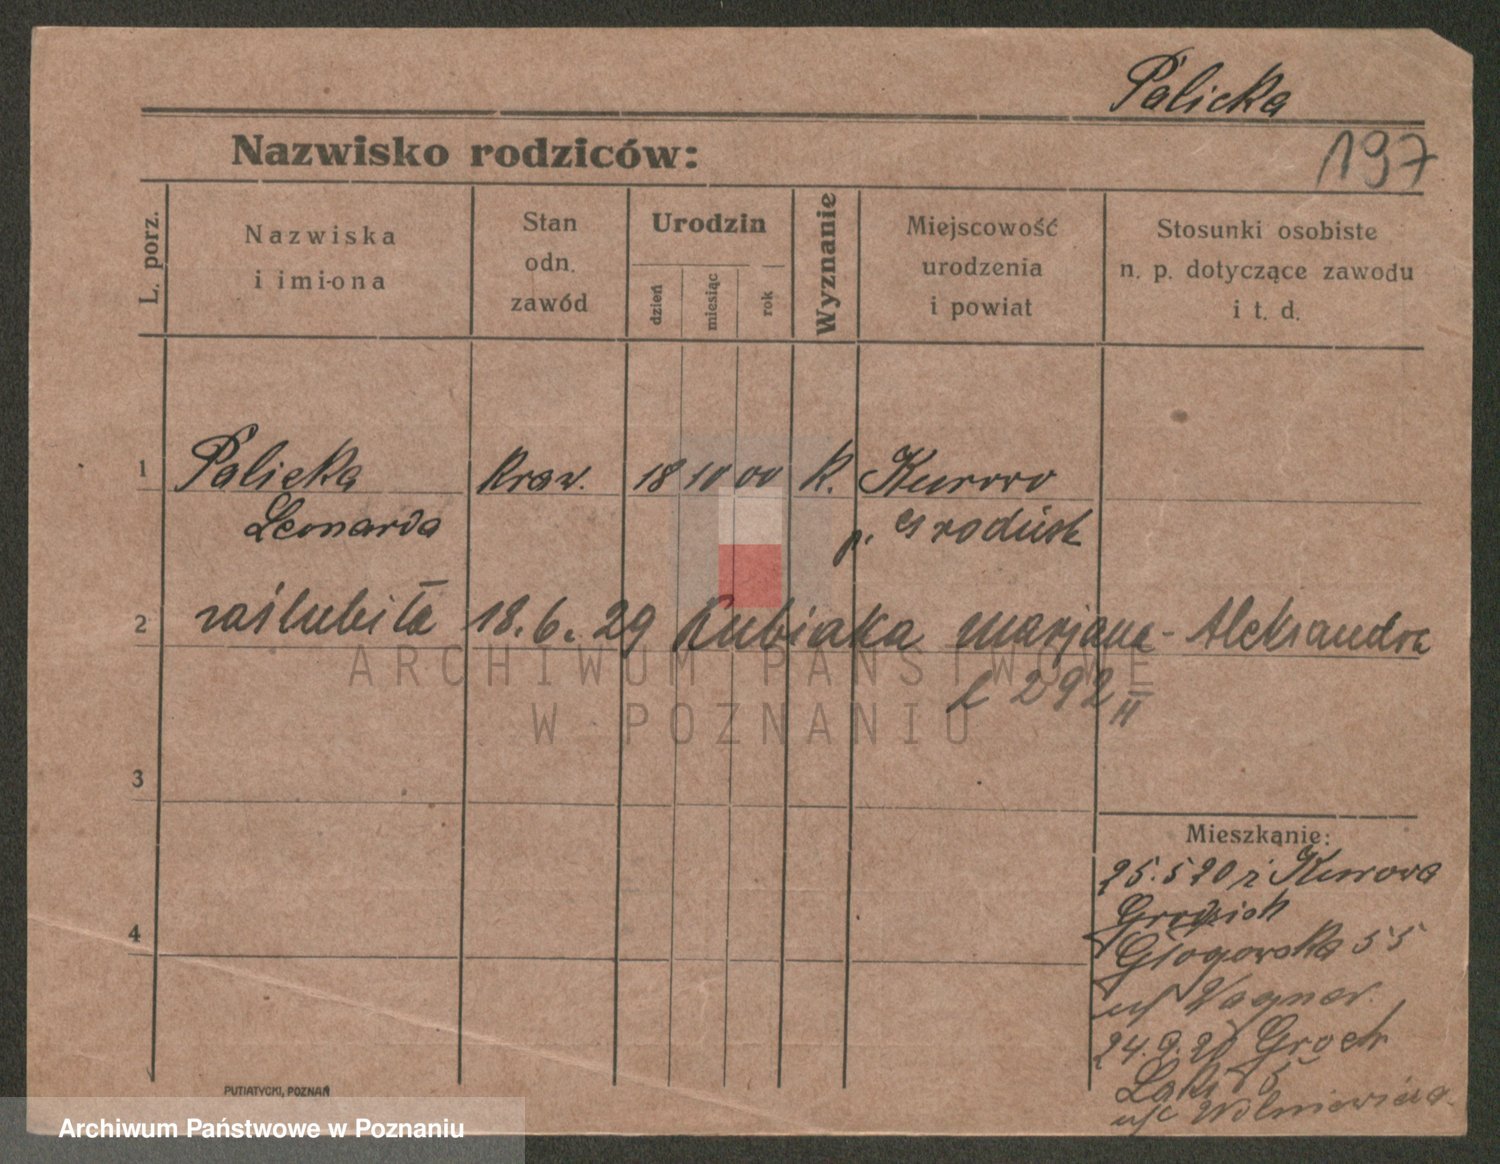 Palicka
197
Nazwisko rodziców:
L. porz.
Nazwiska
i imiona
Stan
odn.
zawód
Urodzin
dzień
miesiąc
rok
Wyznanie
Miejscowość
urodzenia
i powiat
Stosunki osobiste
n. p. dotyczące zawodu
i t. d.
1 Palicka kraw. 18 10 00 k. Kurowo
Leonarda p. Grodzisk
2 zaślubiła 18.6.29 Kubiaka Marjana - Aleksandra
292 II
ARCHIWUM PAŃSTWOWE
W POZNANIU
3
Mieszkanie:
25.5 20 z Kurowa
Grodzisk
4
Głogowska 55
Wagner.
24.9.20 Groch.
Łąki 5
PUTIATYCKI, POZNAŃ
Archiwum Państwowe w Poznaniu